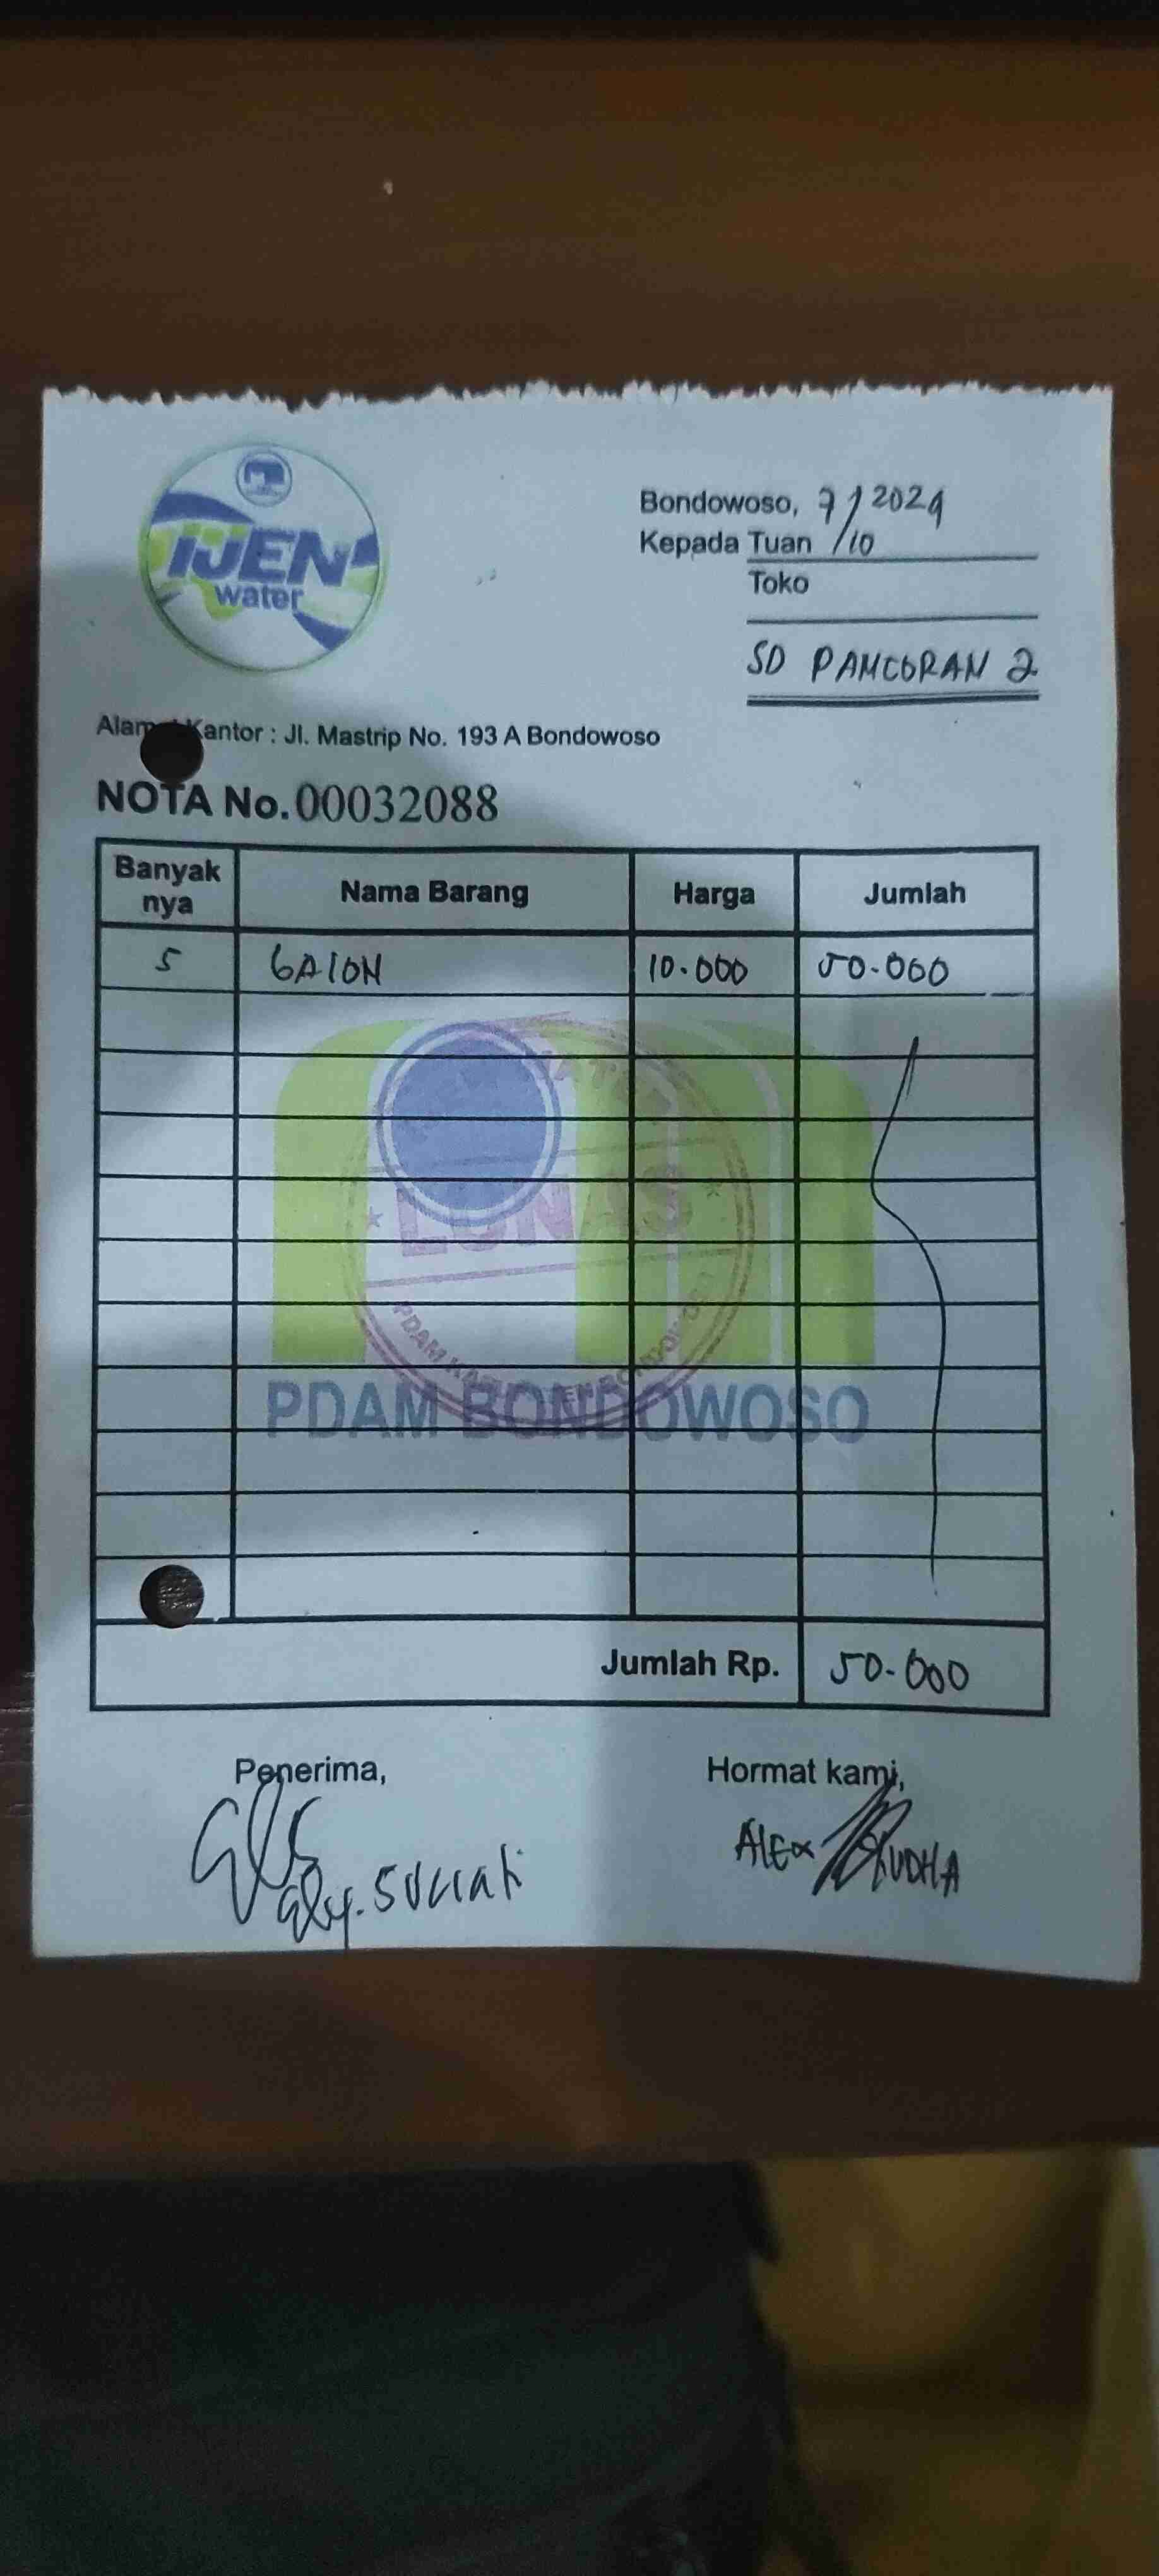 IJEN
water
Bondowoso, 7/10 2024
Kepada Tuan
Toko
SD PAMCORAN 2
Alamat Kantor : Jl. Mastrip No. 193 A Bondowoso
NOTA No. 00032088
Banyak nya Nama Barang Harga Jumlah
5 GALON 10.000 50.000
LUNAS
PDAM BONDOWOSO
Jumlah Rp. 50.000
Penerima, Hormat kami,
Suciati ALEX YUDHA